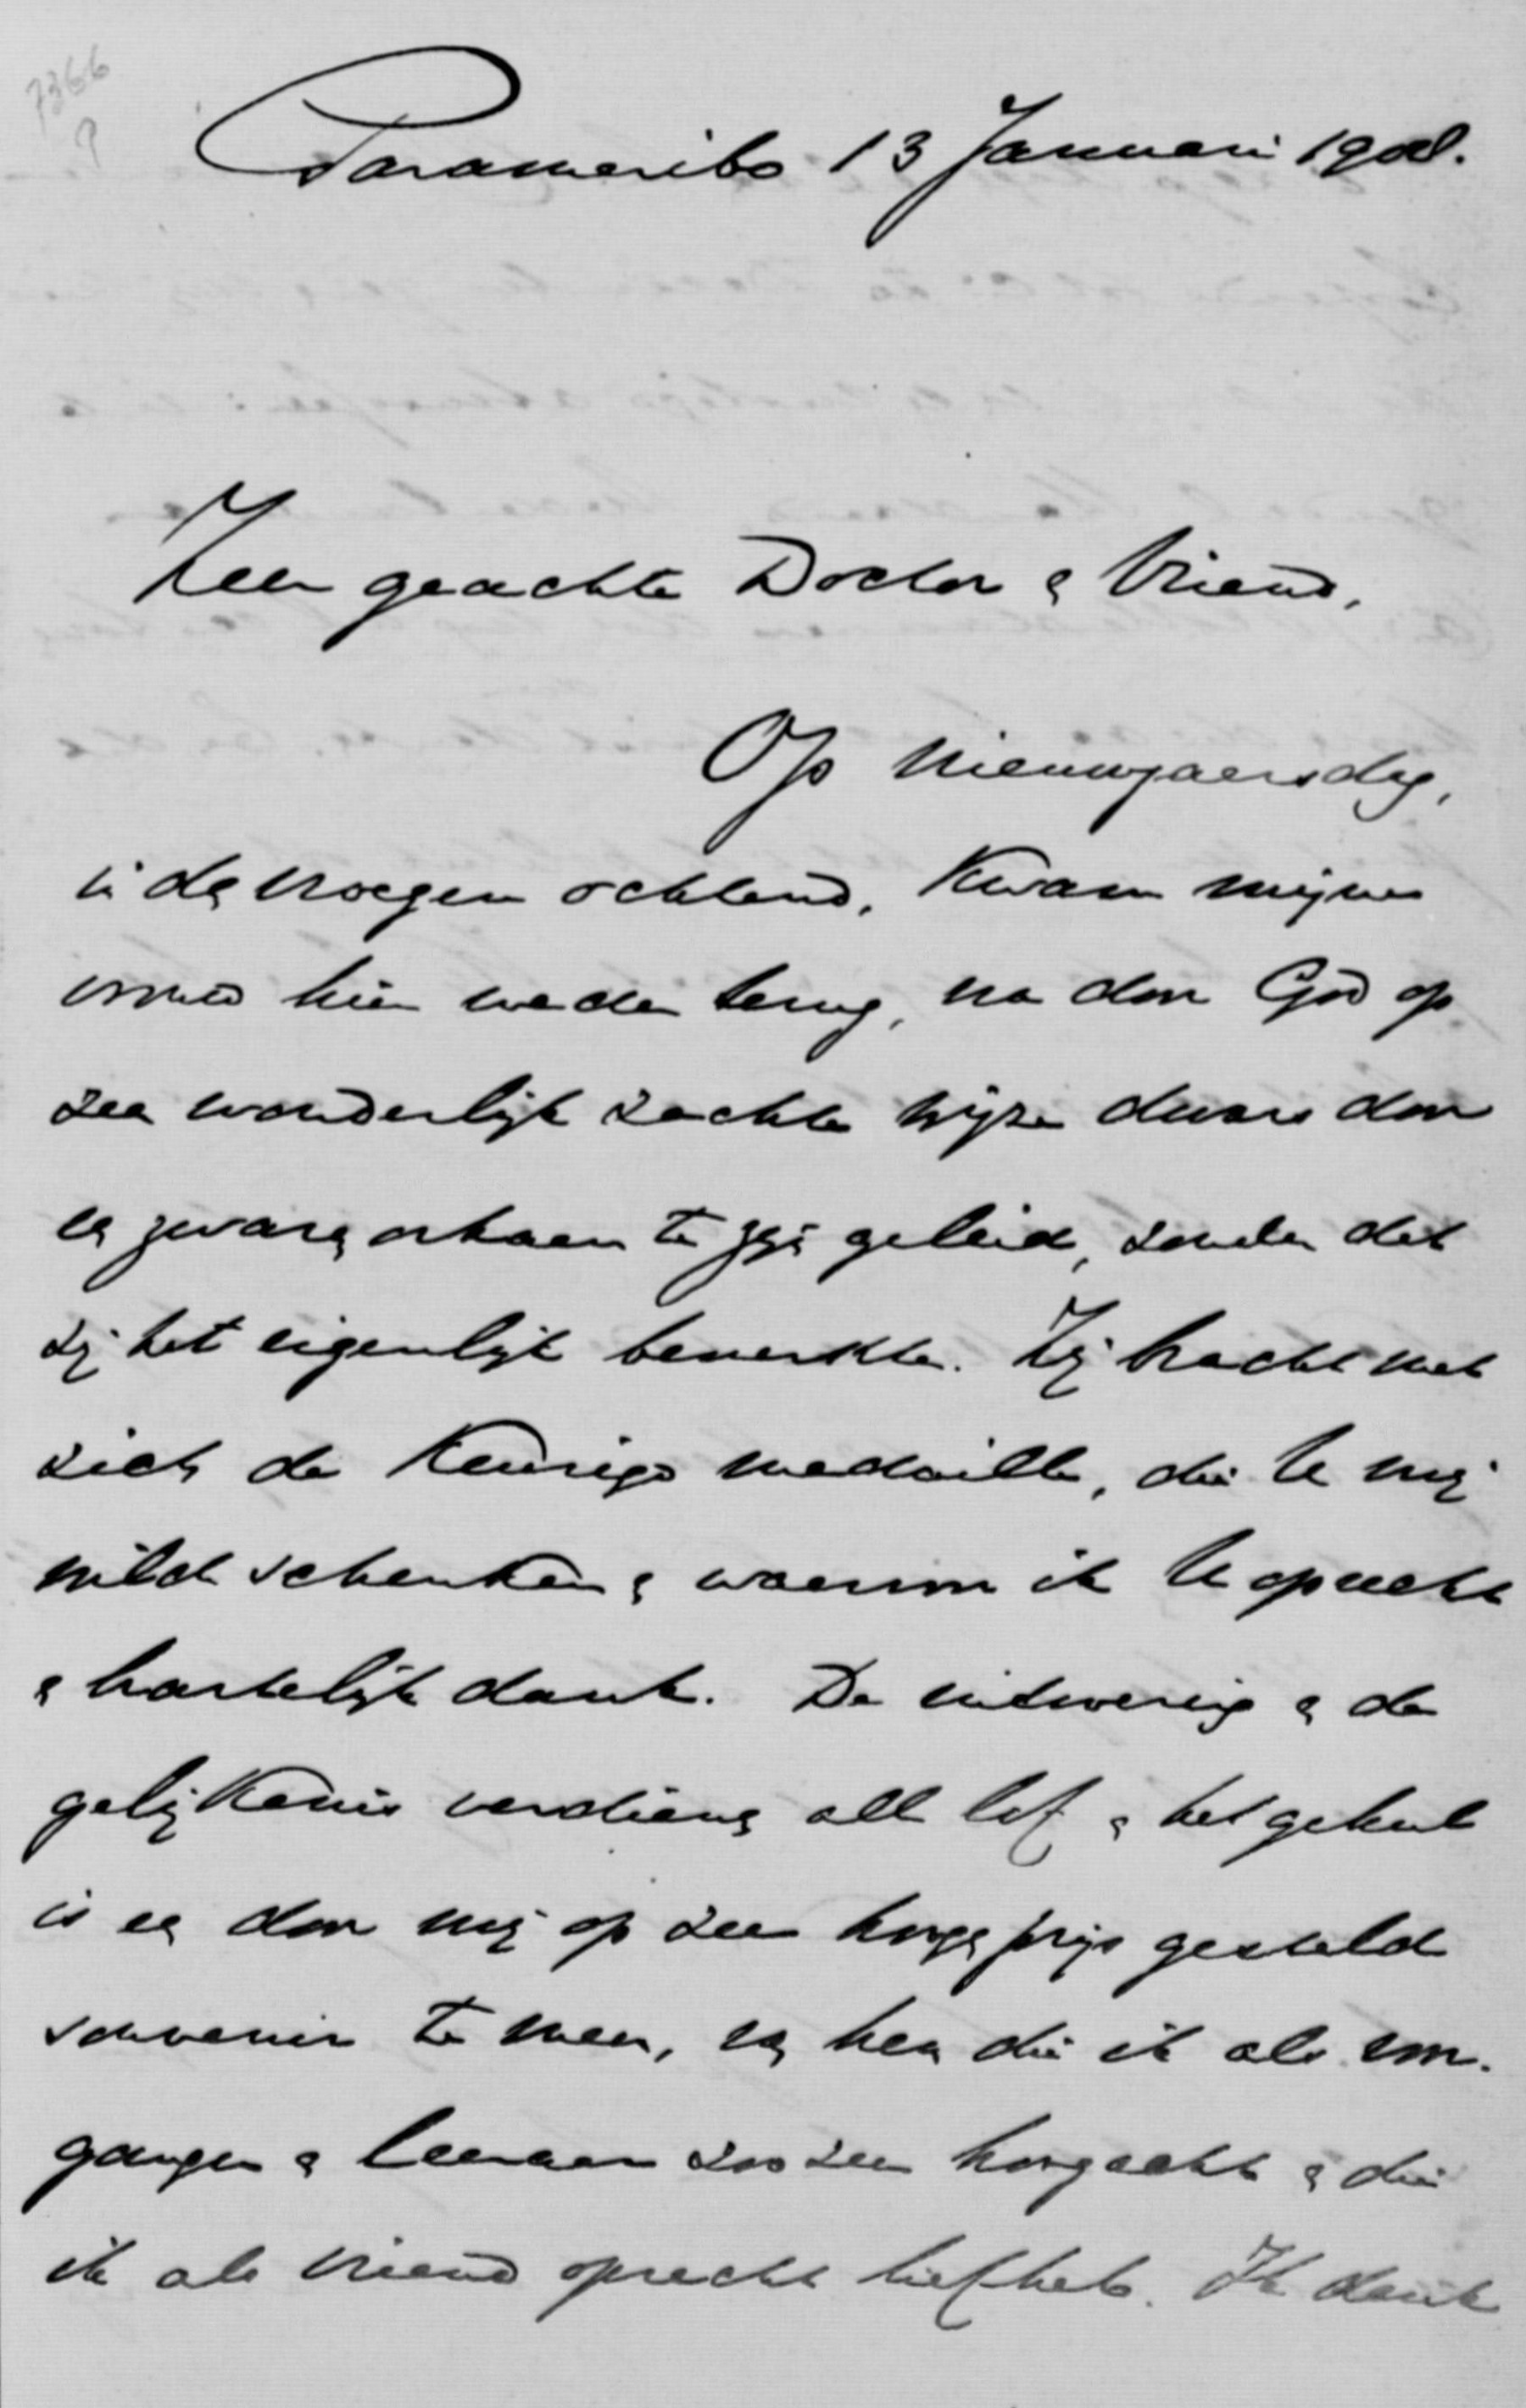 7366
9
Paramaribo 13 Januari 1908.
Zeer geachte Doctor & Vriend,
Op Nieuwjaarsdag,
in de vroegen ochtend, kwam mijne
vrouw hier weder terug, na door God op
zeer wonderlijk zachte wijze dwars door
een zwaren orkaan te zijn geleid, zonder dat
zij het eigenlijk bemerkte. Zij bracht met
zich de keurige medaille, die U mij
wilde schenken & waarvoor ik U oprecht
& hartelijk dank. De uitvoering & de
gelijkenis verdienen alle lof & het geheel
is een door mij op zeer hooge prijs gesteld
souvenir te meer, van hen die ik als voor-
ganger & leeraar zoo zeer hoogacht & die
ik als vriend oprecht liefheb. Ik dank